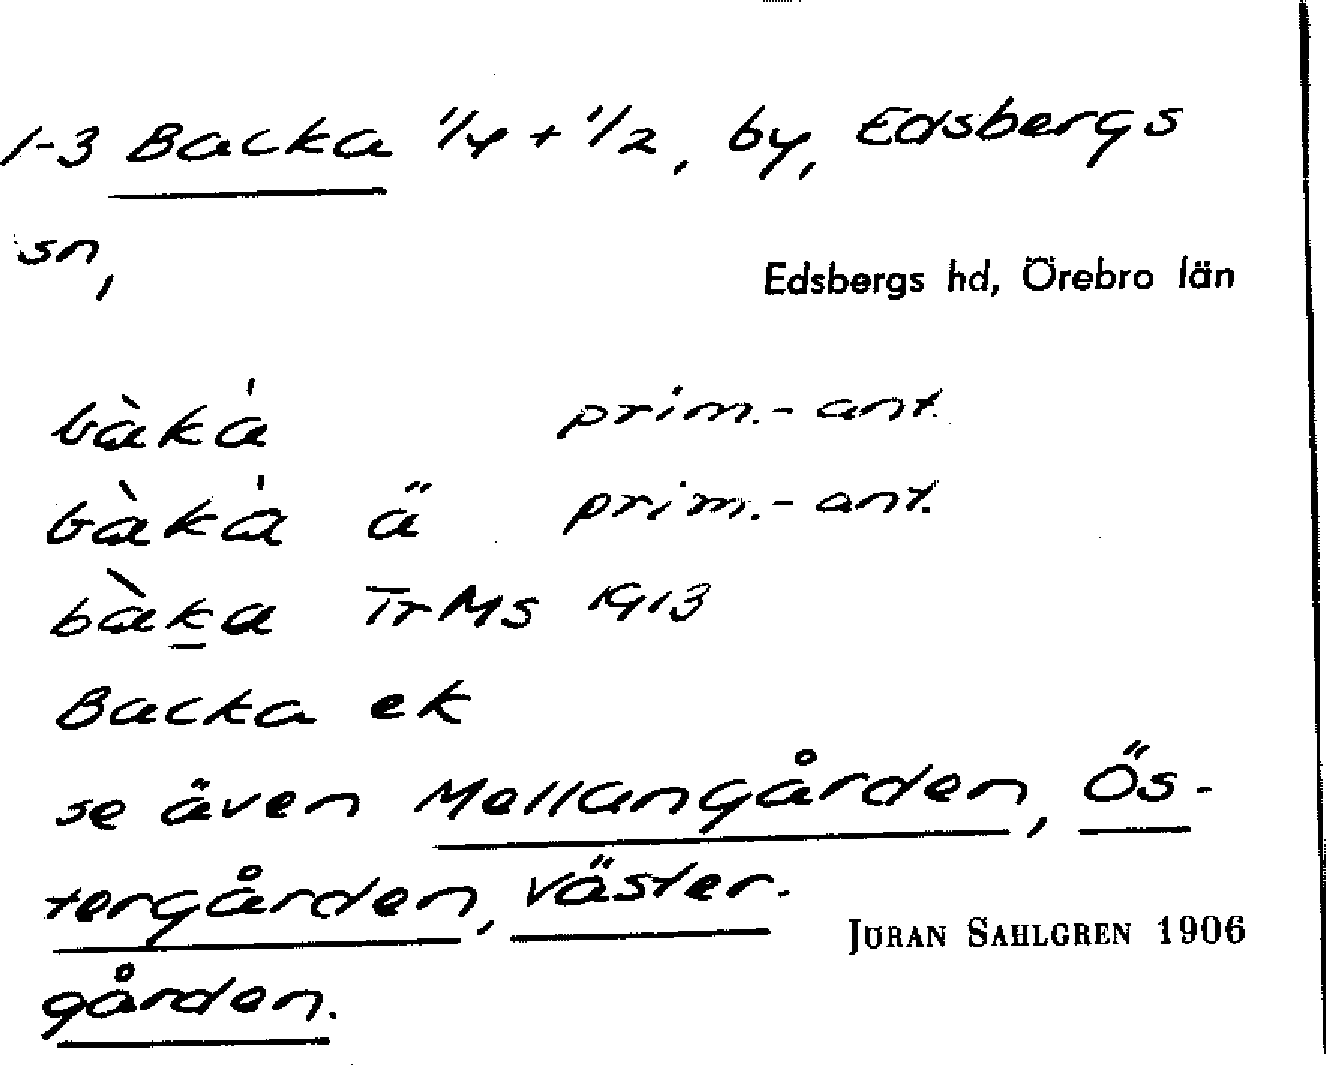 1-3 Backa 1/4 + 1/2, by, Edsbergs
sn,
Edsbergs hd, Örebro län
bàká prim.-ant.
bàká ä prim.-ant.
bàka TrMs 1913
Backa ek
se även Mellangården, Ös-
tergården, Väster-
gården.
JÖRAN SAHLGREN 1906